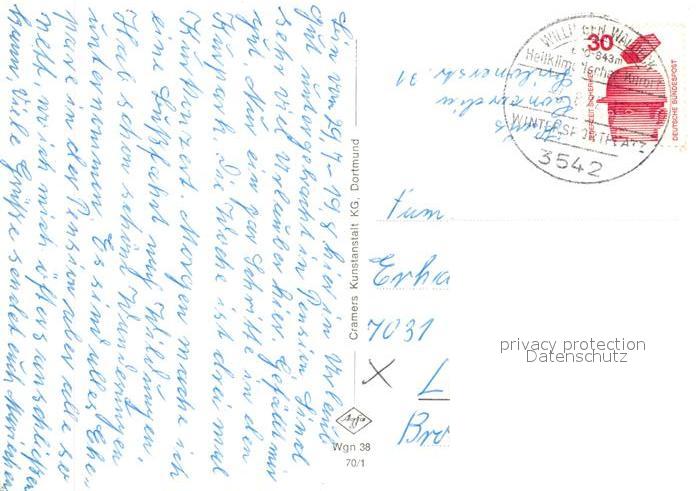 Bin vom 29/7 - 19/8 hier in Urlaub
Gut untergebracht in Pension. Sind
sehr viel Urlauber hier. Gefällt mir
gut. Nur ein paar Schritte in den
Kurpark. Die Woche ist drei mal
Kurkonzert. Morgen mache ich
eine
Hab schon schöne Wanderungen
unternommen. Es sind alles Ehe-
paare in der Pension aber alle so
nett, wo ich mich öfters anschließen
kann. Viele Grüße sendet euch
Cramers Kunstanstalt KG, Dortmund
Agfa
Wgn 38
70/1
WILLINGEN WALDECK
-843m
Heilklimatischer Kurort
WINTERSPORTPLATZ
3542
30
JEDERZEIT SICHERHEIT
DEUTSCHE BUNDESPOST
31
Fam
Erha
7031
L
Bro
privacy protection
Datenschutz